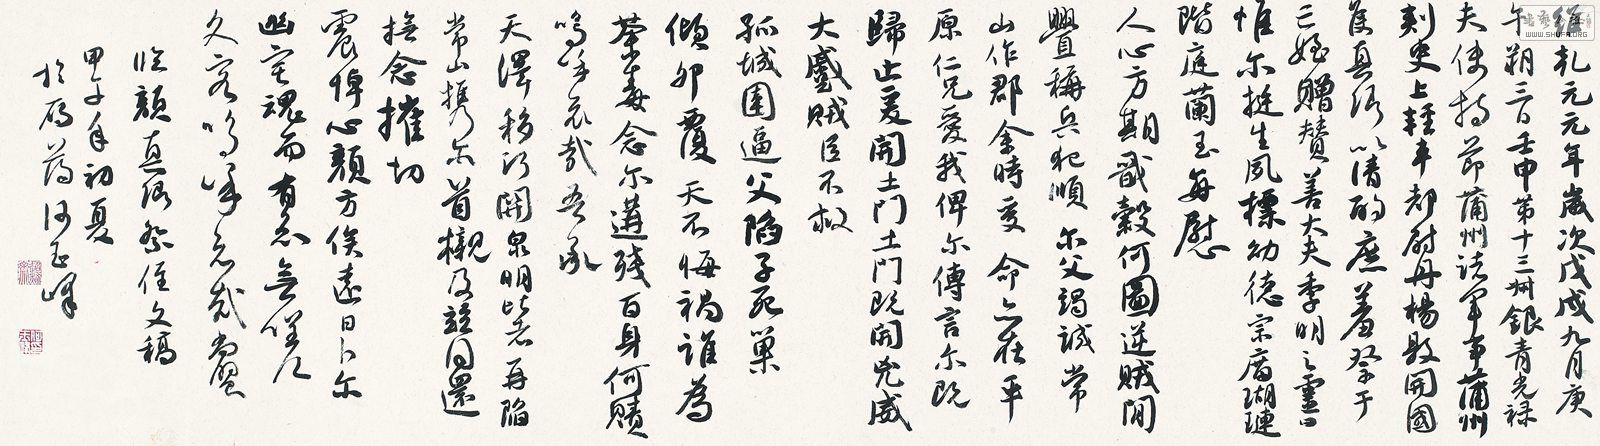 維乾元元年歲次戊戌九月庚
午朔三日壬申第十三叔銀青光禄
夫使持節蒲州諸軍事蒲州
刺史上輕車都尉丹楊縣開國
侯真卿以清酌庶羞祭于
亡姪贈賛善大夫季明之靈曰
惟尔挺生夙標幼德宗廟瑚璉
階庭蘭玉每慰
人心方期戩穀何圖逆賊閒
舋稱兵犯順尔父竭誠常
山作郡余時受命亦在平
原仁兄愛我俾尔傳言尔既
歸止爰開土門土門既開兇威
大蹙賊臣不救
孤城圍逼父陷子死巢
傾卵覆天不悔禍誰為
荼毒念尔遘殘百身何贖
嗚呼哀哉吾承
天澤移河關泉明比者再陷
常山攜尔首櫬及兹同還
撫念摧切
震悼心顏方俟遠日卜尔
幽宅魂而有知無嗟久
久客嗚呼哀哉尚饗
臨顏真卿祭侄文稿
甲子年初夏
於
WWW.SHUFA.ORG